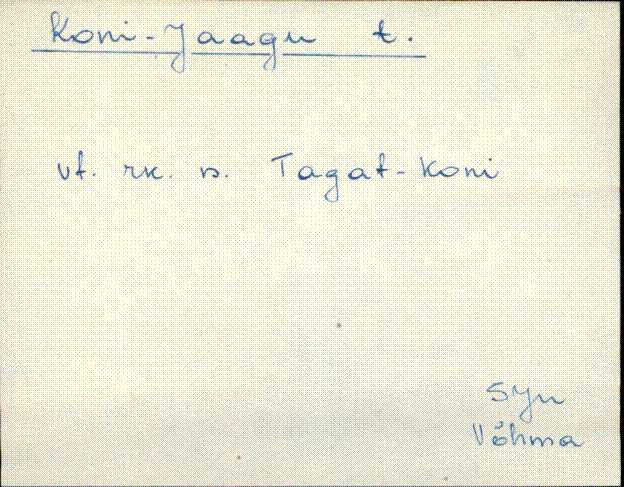 Koni-Jaagu t.
vt. rk. s. Tagat-Koni
SJn
Võhma